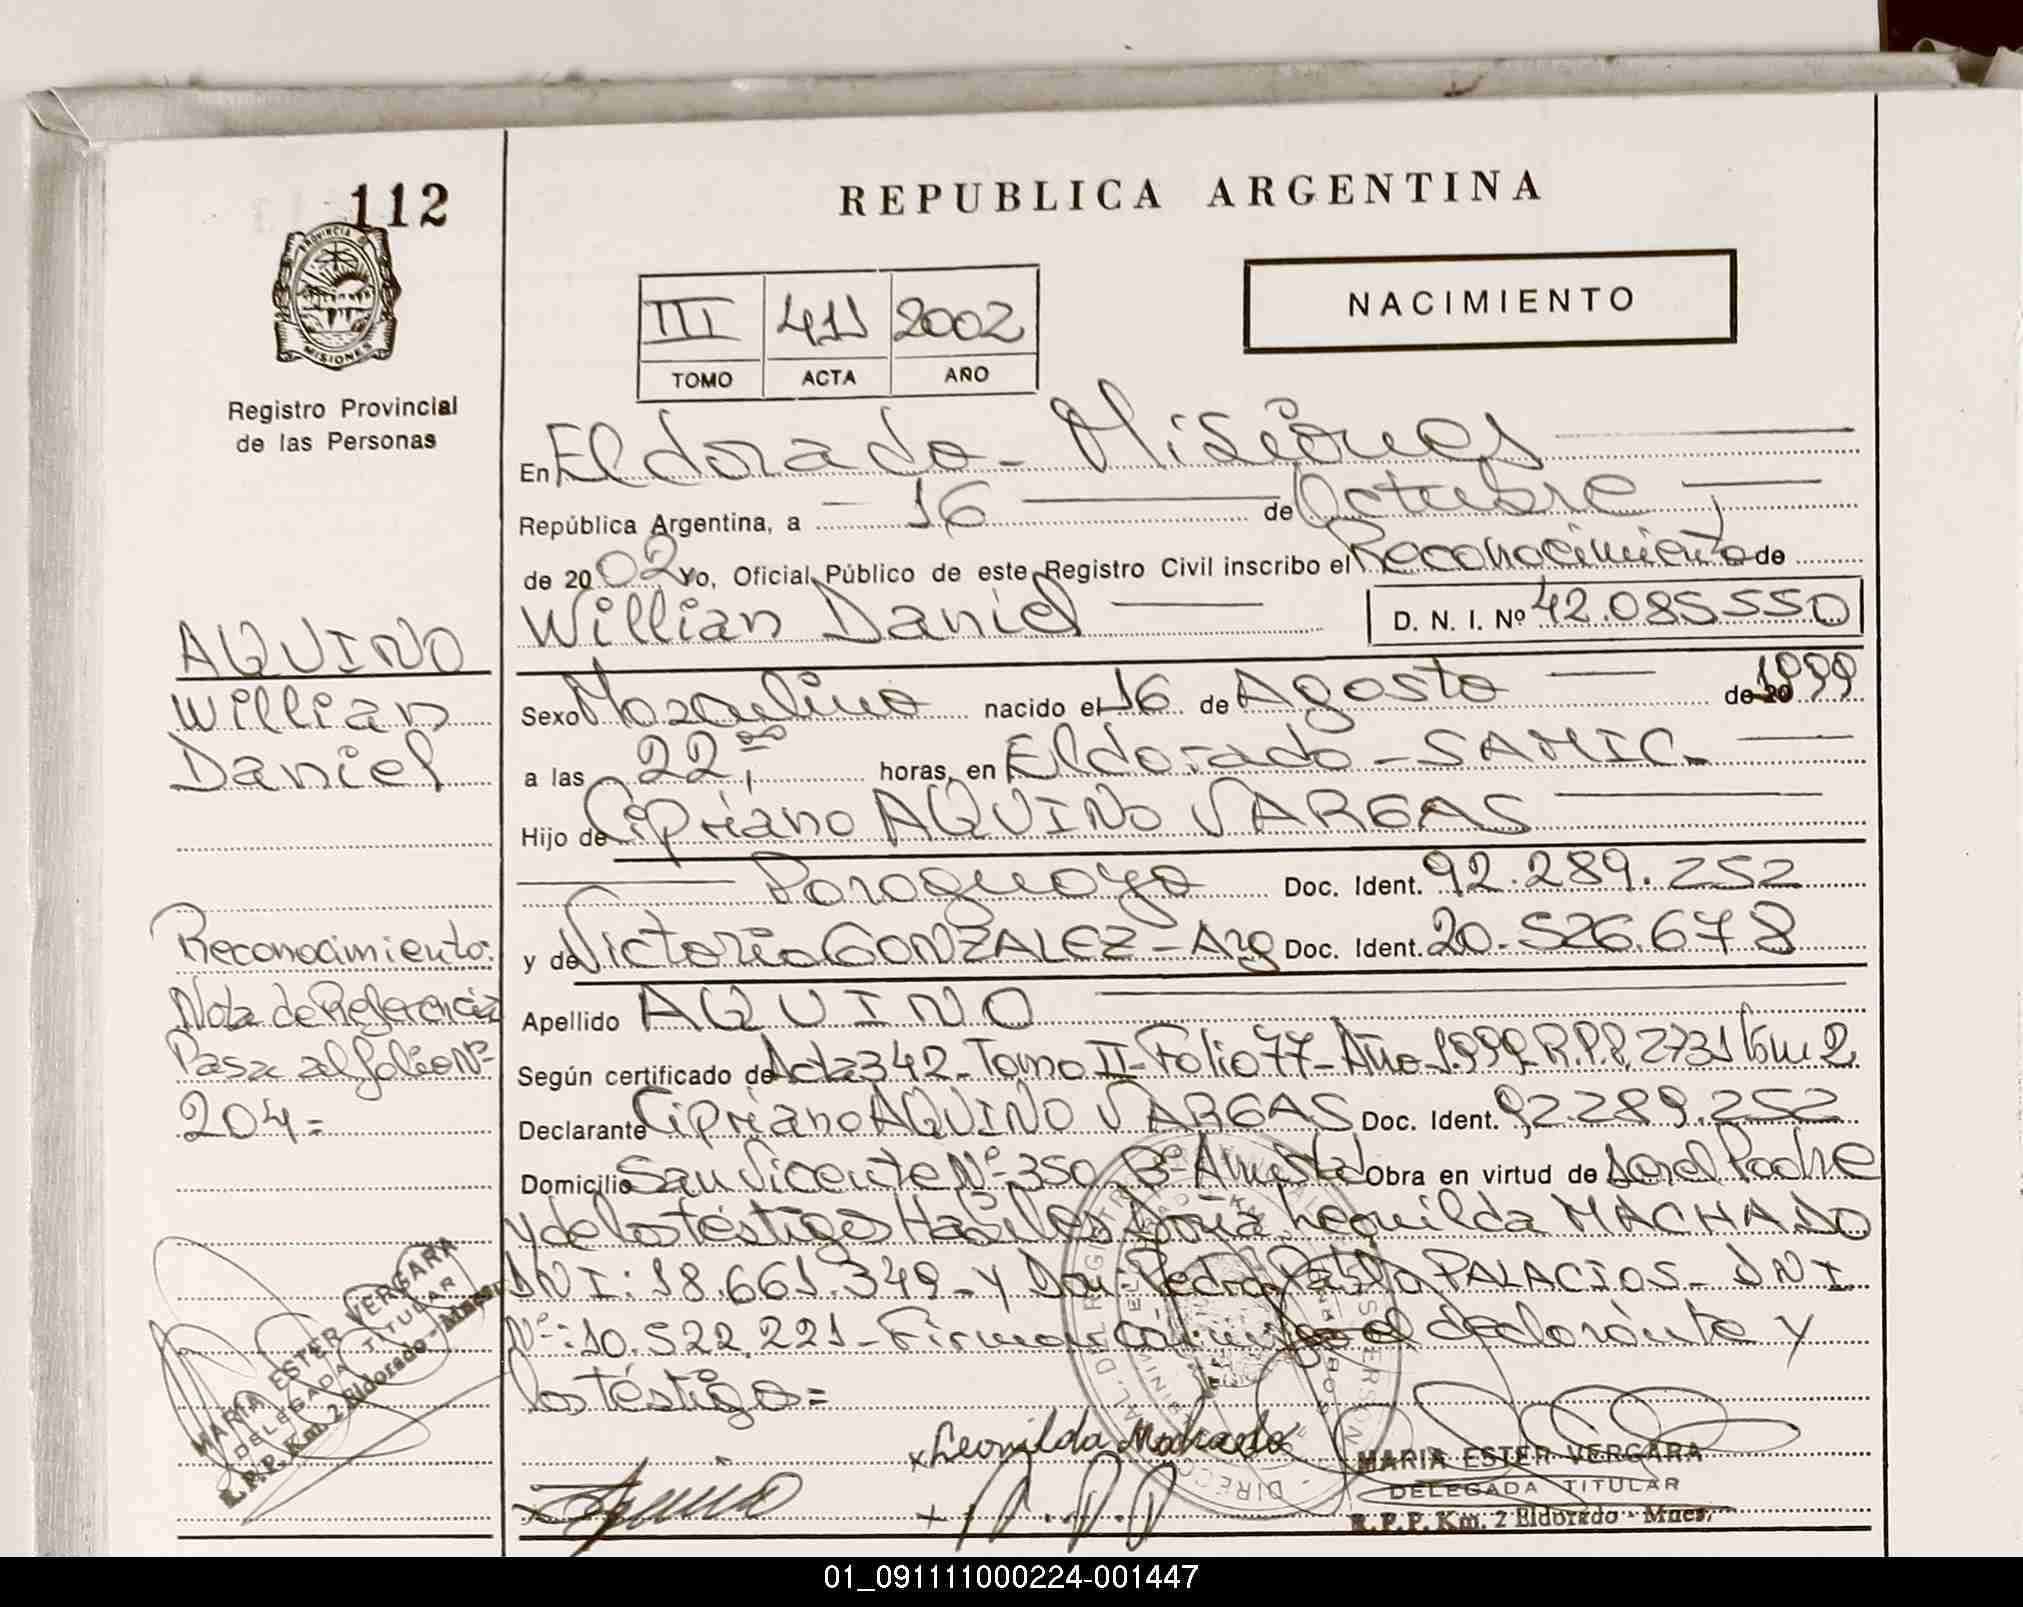 112
PROVINCIA DE
MISIONES
Registro Provincial
de las Personas
AQUINO
Willian
Daniel
Reconocimiento:
Nota de Referencia
Pasa al folio Nº
204=
MARIA ESTER VERGARA
DELEGADA TITULAR
R.P.P. Km. 2 Eldorado - Mnes.
REPUBLICA ARGENTINA
NACIMIENTO
III 411 2002
TOMO ACTA AÑO
En Eldorado - Misiones
República Argentina, a - 16 de Octubre
de 2002 Yo, Oficial Público de este Registro Civil inscribo el Reconocimiento de
Willian Daniel D. N. I. Nº 42.085.550
Sexo Masculino nacido el 16 de Agosto de 20 1999
a las 22,00 horas, en Eldorado - SAMIC.
Hijo de Cipriano AQUINO VARGAS
Paraguayo Doc. Ident. 92.289.252
y de Victoria GONZALEZ - Arg Doc. Ident. 20.526.678
Apellido AQUINO
Según certificado de Acta 342 - Tomo II - Folio 77 - Año 1.999 R.P.P. 2731 Km 2.
Declarante Cipriano AQUINO VARGAS Doc. Ident. 92.289.252
Domicilio San Vicente Nº 350 Bº Amistad Obra en virtud de ser el Padre
y de los testigos Habiles Doña Leonilda MACHADO
DNI: 18.661.349 - y Don Pedro PALACIOS - DNI
Nº: 10.522.221 - Firman conmigo el declarante y
los testigos=
x Leonilda Machado
MARIA ESTER VERGARA
DELEGADA TITULAR
R.P.P. Km. 2 Eldorado - Mnes.
01_091111000224-001447